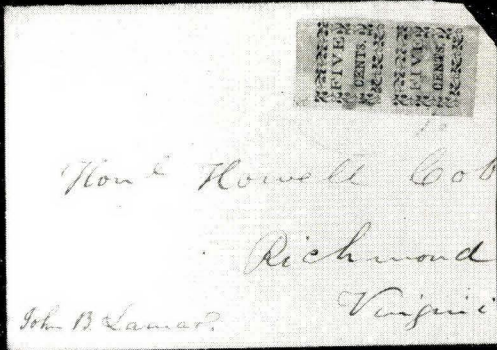 FIVE CENTS. FIVE CENTS.
10
Honl Howell Cob
Richmond
Virgini
John B. Lamar